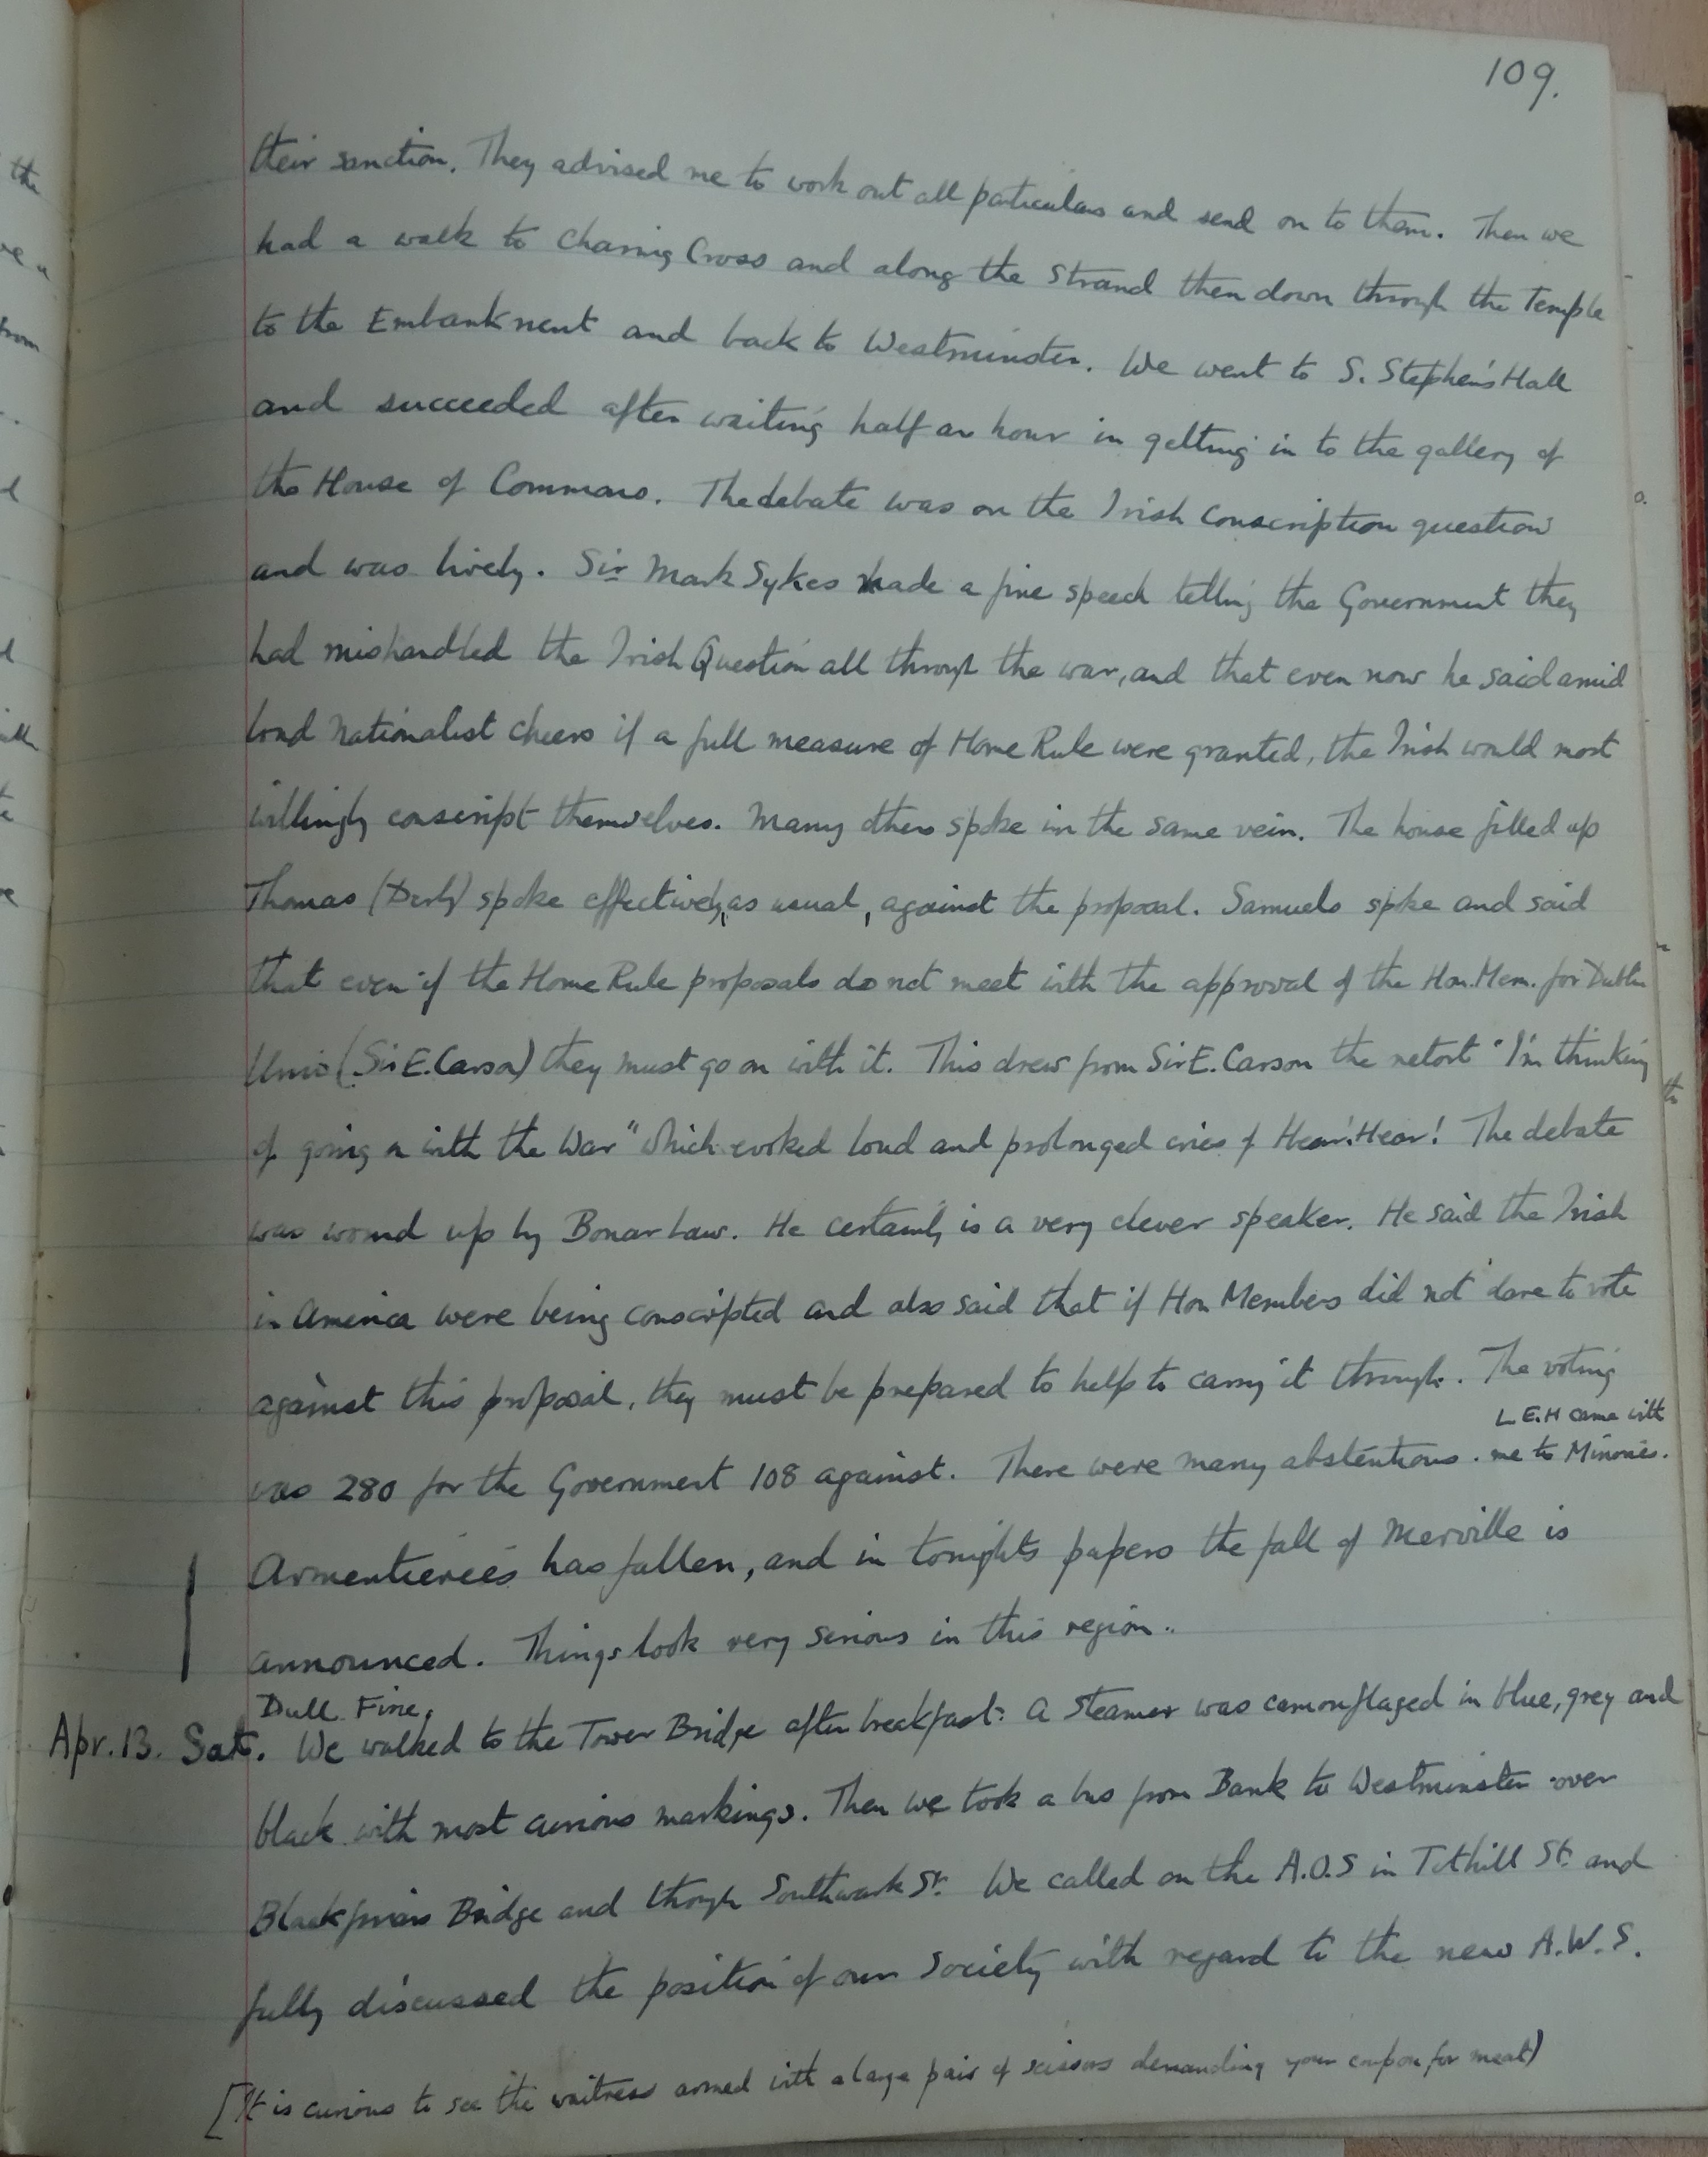 109.
their sanction. They advised me to work out all particulars and send on to them. Then we
had a walk to Charing Cross and along the Strand then down through the Temple
to the Embankment and back to Westminster. We went to S. Stephen's Hall
and succeeded after waiting half an hour in getting in to the gallery of
the House of Commons. The debate was on the Irish Conscription question
and was lively. Sir Mark Sykes made a fine speech telling the Government they
had mishandled the Irish Question all through the war, and that even now he said amid
loud Nationalist cheers if a full measure of Home Rule were granted, the Irish would most
willingly conscript themselves. Many others spoke in the same vein. The house filled up
Thomas (Derby) spoke effectively, as usual, against the proposal. Samuels spoke and said
that even if the Home Rule proposals do not meet with the approval of the Hon. Mem. for Dublin
Univ (Sir E. Carson) they must go on with it. This drew from Sir E. Carson the retort "I'm thinking
of going on with the War" which evoked loud and prolonged cries of Hear! Hear! The debate
was wound up by Bonar Law. He certainly is a very clever speaker. He said the Irish
in America were being conscripted and also said that if Hon Members did not dare to vote
against this proposal, they must be prepared to help to carry it through. The voting
L.E.H came with
was 280 for the Government 108 against. There were many abstentions. me to Minories.
Armentierès has fallen, and in tonights papers the fall of Merville is
announced. Things look very serious in this region.
Dull Fine.
Apr. 13. Sat. We walked to the Tower Bridge after breakfast: A steamer was camouflaged in blue, grey and
black with most curious markings. Then we took a bus from Bank to Westminster over
Blackfriars Bridge and though Southwark St. We called on the A.O.S in Tothill St. and
fully discussed the position of our Society with regard to the new A.W.S.
[It is curious to see the waitress armed with a large pair of scissors demanding your coupon for meat)